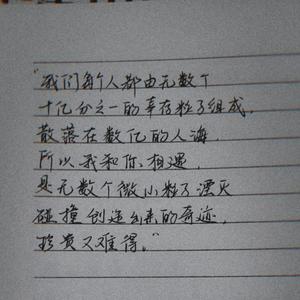 “我们每个人都由无数个
十亿分之一的幸存粒子组成，
散落在数亿的人海，
所以我和你相遇，
是无数个微小粒子湮灭
碰撞创造出来的奇迹，
珍贵又难得。”